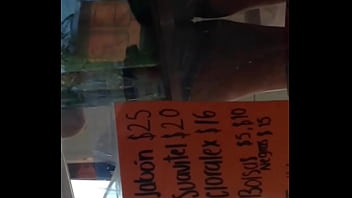 Jabón $25
Suavitel $20
Cloralex $16
Bolsas $5, $10
Negras $15